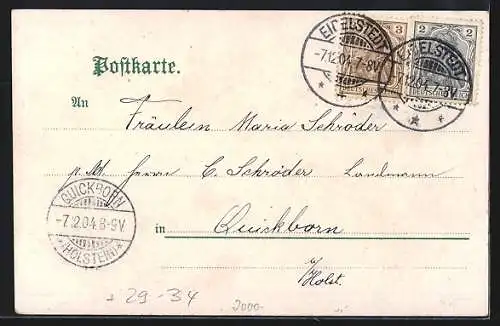 EIDELSTEDT
-7.12.04.7-8V
* *
3
EIDELSTEDT
12.04 8V
* * *
2 2
Postkarte.
An
Fräulein Maria Schröder
p. Adr. Herrn C. Schröder Landmann
in Quickborn
Holst.
QUICKBORN
-7.12.04.8-9V
*(HOLSTEIN)*
29-34
2000-